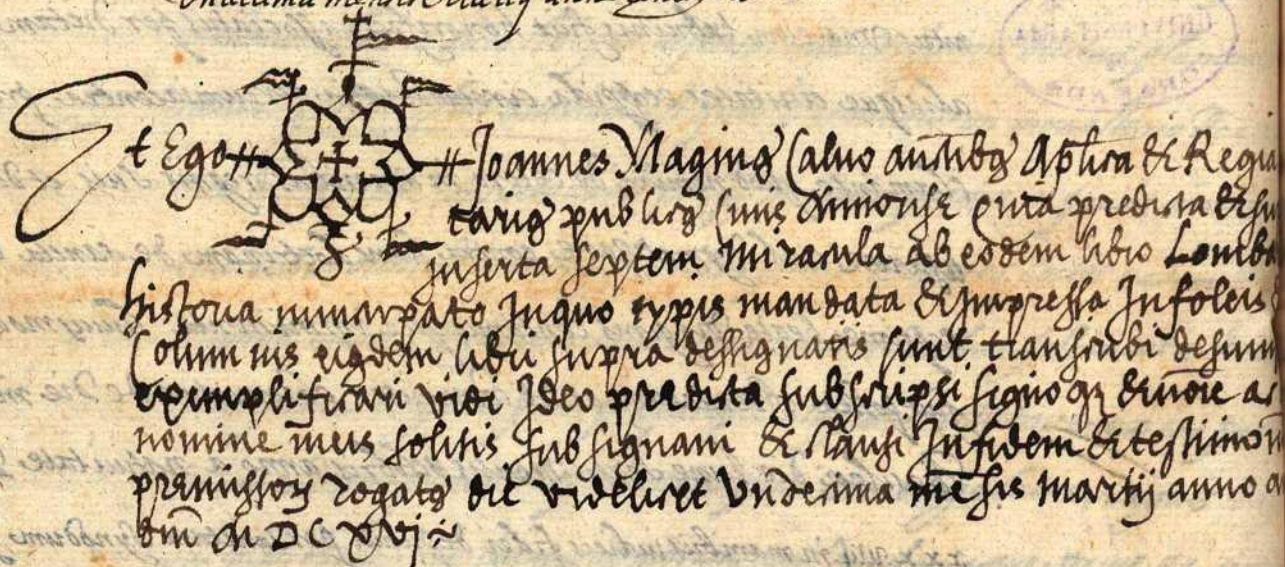 Et Ego Joannes Maginꝰ Calvo auctᵗᵇᵍ Aplica & Regia
tariꝰ publicꝰ Civis predicta &
inserta septem Miracula ab eodem libro Lomba
historia nuncupato In quo typis mandata & Impressa In foleis
Columnis eiꝰdem libri supra dessignatis sunt transcribi desum
exemplificari vidi Ideo predicta subscripsi signo qꝫ & noīe ac
nomine meis solitis subsignavi & clausi In fidem & testimon
premissoꝝ rogatꝰ die videlicet Undecima mēsis Martij anno a
dnī M DC XVj